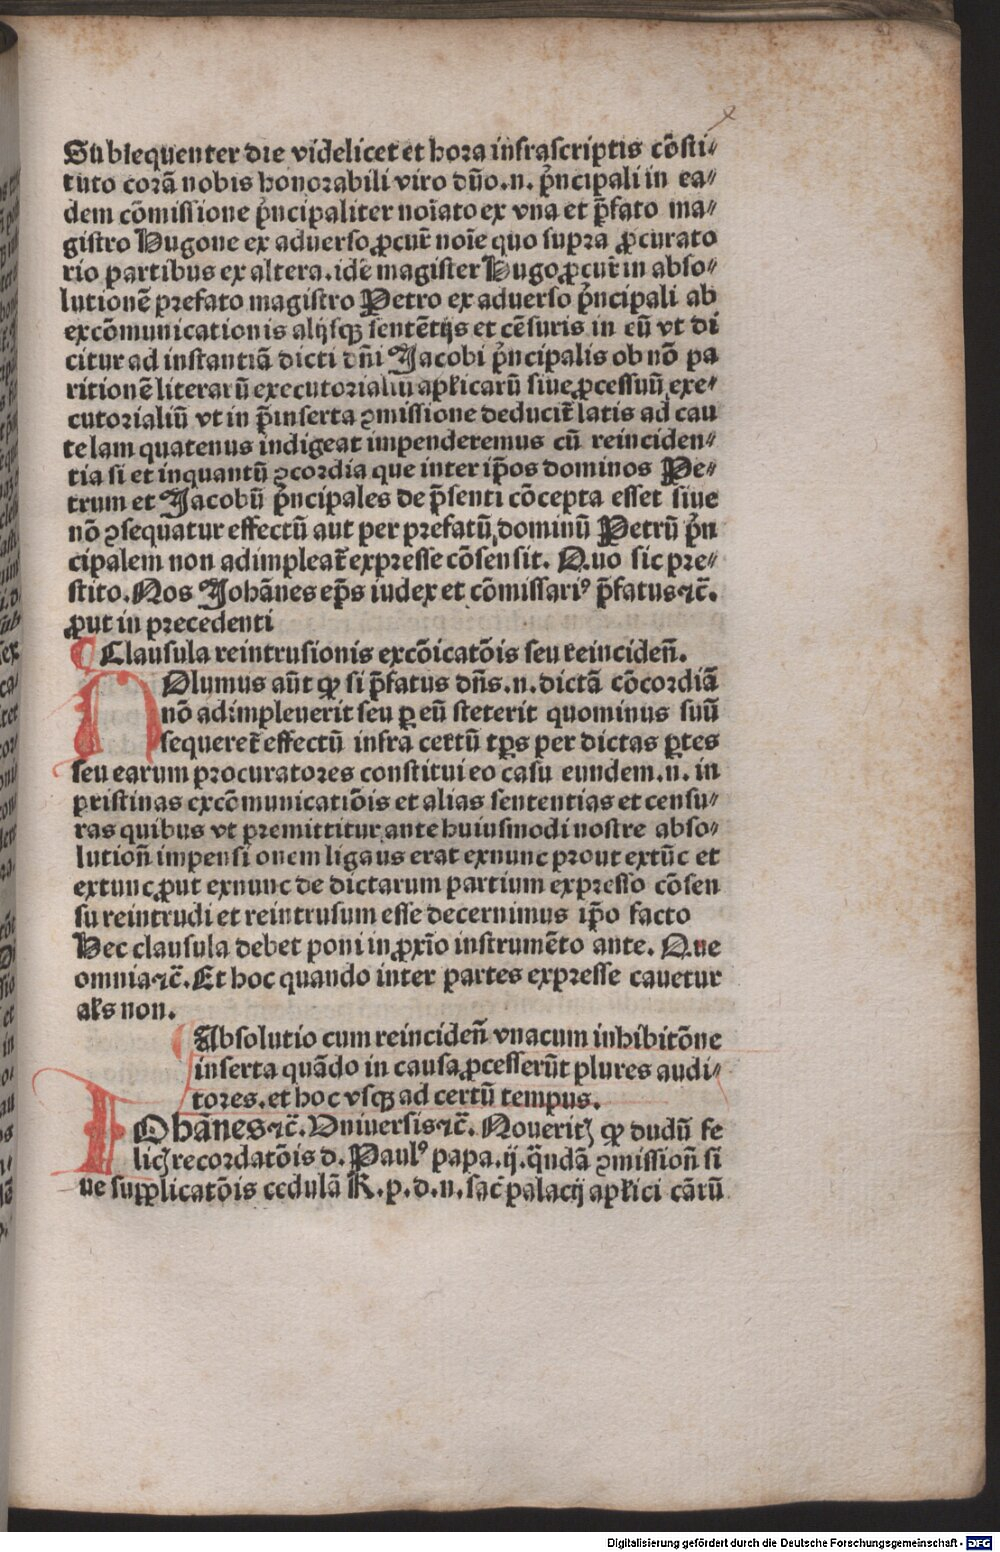 Subsequenter die videlicet et hora infrascriptis cõsti⸗
tuto corã nobis honorabili viro dño.n. p̃ncipali in ea⸗
dem cõmissione p̃ncipaliter noĩato ex vna et p̃fato ma⸗
gistro Hugone ex aduerso ꝓcur̃ noĩe quo supra ꝓcurato
rio partibus ex altera.idẽ magister Hugo ꝓcur̃ in abso⸗
lutionẽ prefato magistro Petro ex aduerso p̃ncipali ab
excõmunicationis alijsqꝫ sentẽtijs et cẽsuris in eũ vt di
citur ad instantiã dicti dñi Jacobi p̃ncipalis ob nõ pa
ritionẽ literarũ executorialiũ apl̃icarũ siue ꝓcessuũ exe⸗
cutorialiũ vt in p̃inserta ꝯmissione deducit̃ latis ad cau
telam quatenus indigeat impenderemus cũ reinciden⸗
tia si et inquantũ ꝯcordia que inter ip̃os dominos Pe⸗
trum et Jacobũ p̃ncipales de p̃senti cõcepta esset siue
nõ ꝯsequatur effectũ aut per prefatũ dominũ Petrũ p̃n
cipalem non adimpleat̃ expresse cõsensit. Quo sic pre⸗
stito.Nos Johãnes ep̃s iudex et cõmissariꝰ p̃fatus ⁊c̃.
ꝓut in precedenti
Clausula reintrusionis excõicatõis seu reinciden̄.
NOlumus aũt ꝙ si p̃fatus dñs.n.dictã cõcordiã
nõ adimpleuerit seu ꝑ eũ steterit quominus suũ
sequeret̃ effectũ infra certũ tp̃s per dictas ꝑtes
seu earum procuratores constitui eo casu eundem.n. in
pristinas excõmunicatiõis et alias sententias et censu⸗
ras quibus vt premittitur ante huiusmodi nostre abso⸗
lution̄ impensionem ligatus erat exnunc prout extũc et
extunc ꝓut exnunc de dictarum partium expresso cõsen
su reintrudi et reintrusum esse decernimus ip̃o facto
Hec clausula debet poni in ꝓxĩo instrumẽto ante. Que
omnia ⁊c̃. Et hoc quando inter partes expresse cauetur
al̃s non.
Absolutio cum reinciden̄ vnacum inhibitõne
inserta quãdo in causa ꝓcesserũt plures audi⸗
tores.et hoc vsqꝫ ad certũ tempus.
IOhãnes ⁊c̃. Vniuersis ⁊c̃. Nouerit[is] ꝙ dudũ fe
lic[is] recordatõis d. Paulꝰ papa.ij.q̃ndã ꝯmission̄ si
ue supplicatõis cedulã R.p.d.n.sac̃ palacij apl̃ici cãrũ
Digitalisierung gefördert durch die Deutsche Forschungsgemeinschaft - DFG